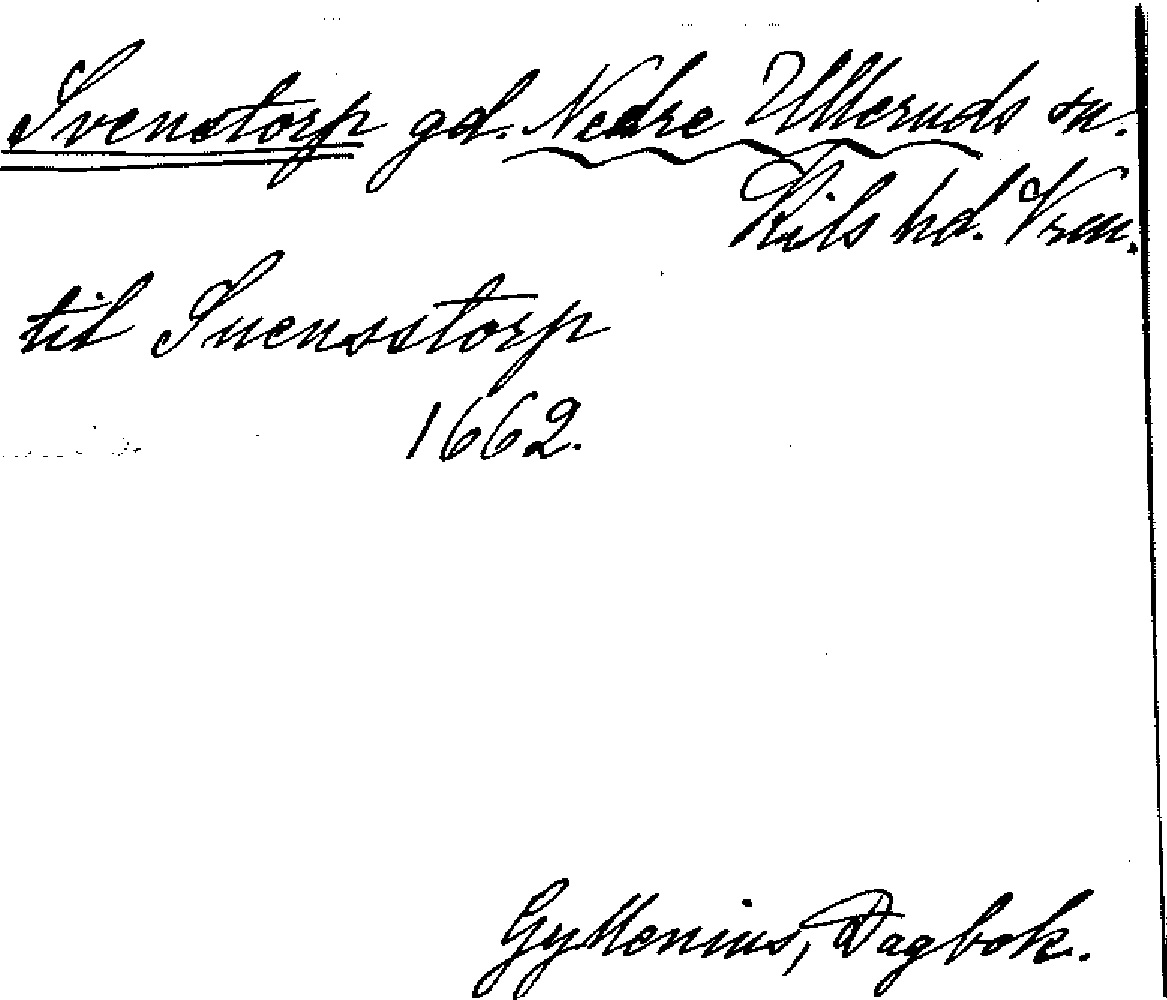 Svenstorp gd. Nedre Ulleruds sn.
Kils hd. Vrm.
til Suensstorp
1662.
Gyllenius, Dagbok.